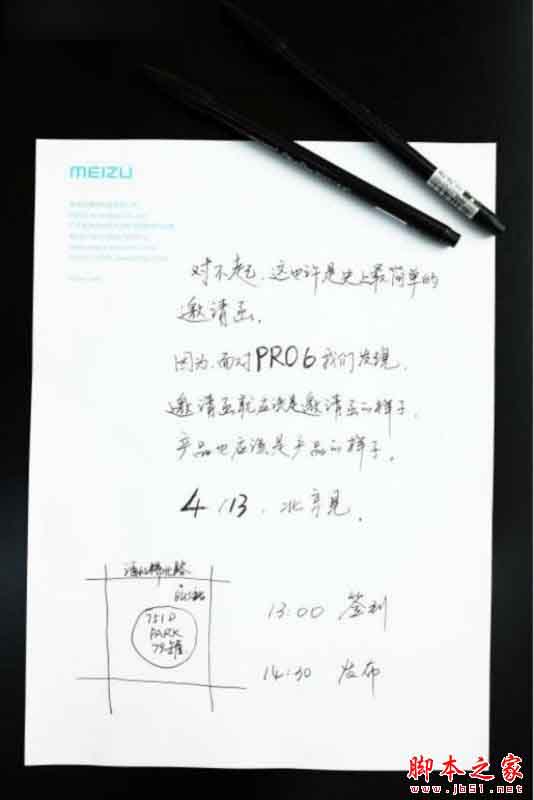 MEIZU
对不起,这也许是史上最简单的
邀请函.
因为,面对PRO6我们发现,
邀请函就应该是邀请函的样子,
产品也应该是产品的样子。
4/13.北京见.
酒仙桥北路
751D
PARK
79罐
13:00 签到
14:30 发布
脚本之家
www.jb51.net